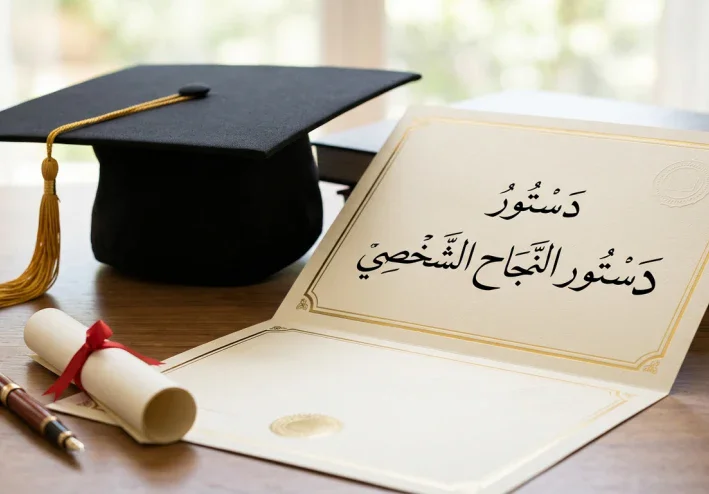 دَسْتُورُ
دَسْتُور النَّجَاح الشَّخْصِيّ